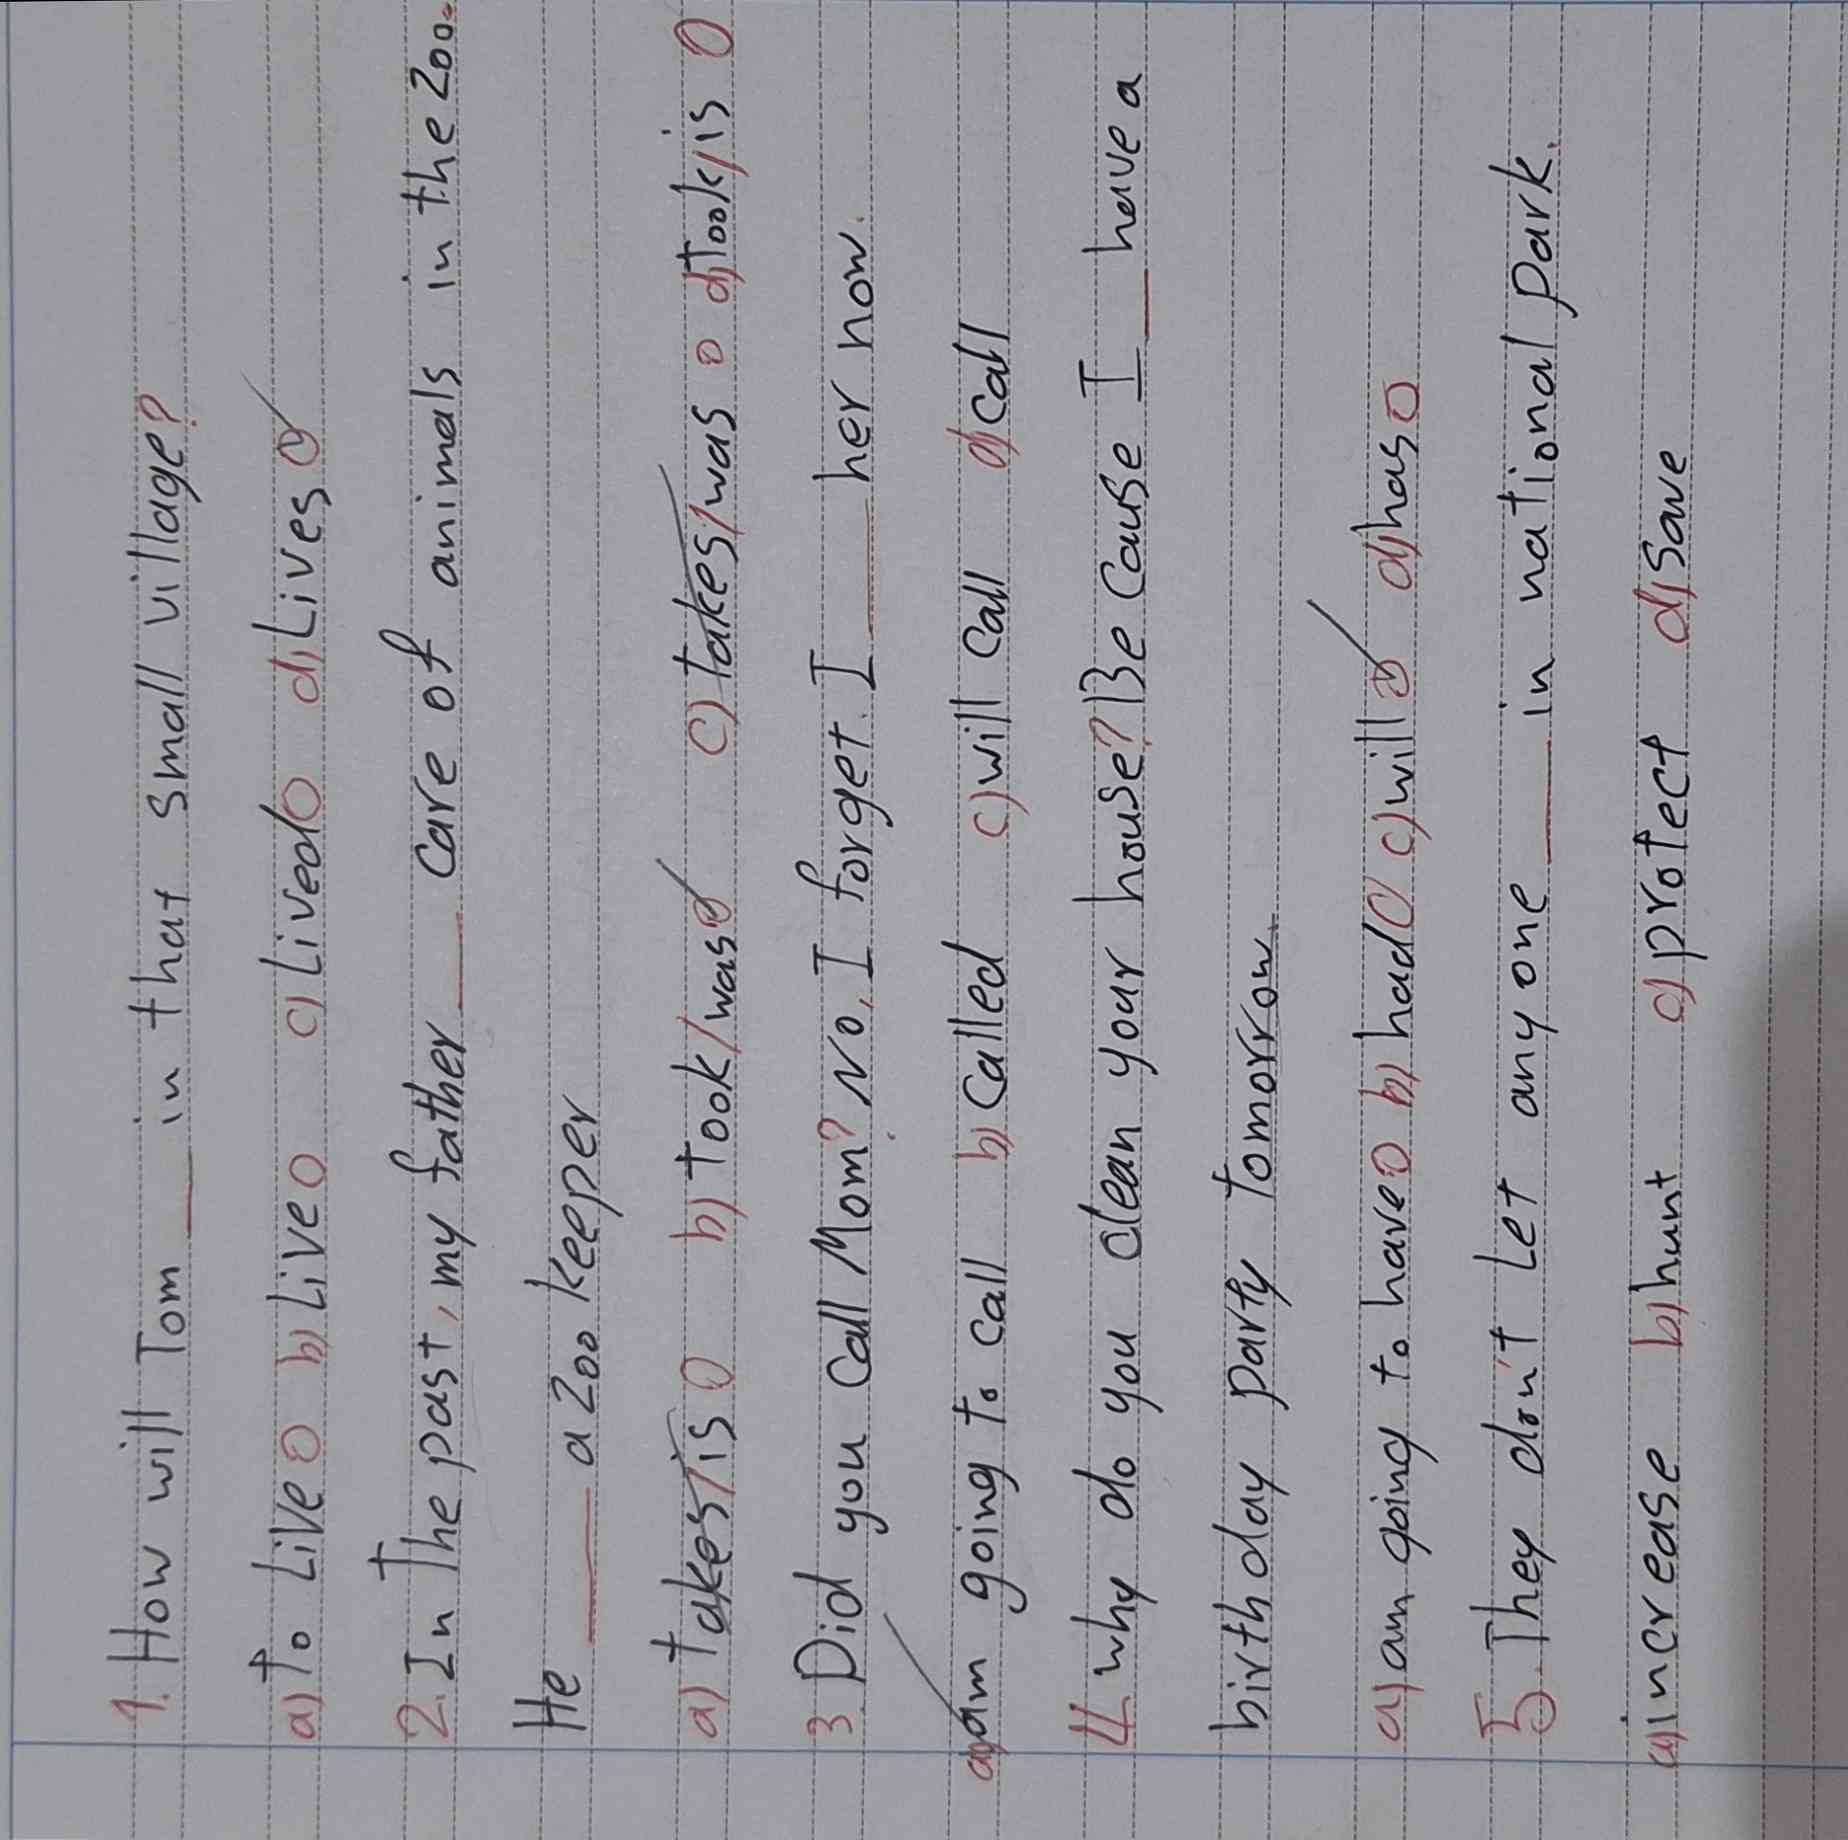 1. How will Tom ___ in that small village?
a) To Live b) Live c) Lived d) Lives
2. In The past, my father ___ care of animals in the zoo.
He ___ a zoo keeper
a) Takes/is b) Took/was c) Takes/was d) Took/is
3. Did you Call Mom? No, I forget. I ___ her now.
a) am going to call b) Called c) will call d) call
4. why do you clean your house? Be cause I ___ have a
birthday party Tomorrow.
a) am going to have b) had c) will d) has
5. They don't Let any one ___ in national park.
a) increase b) hunt c) protect d) save